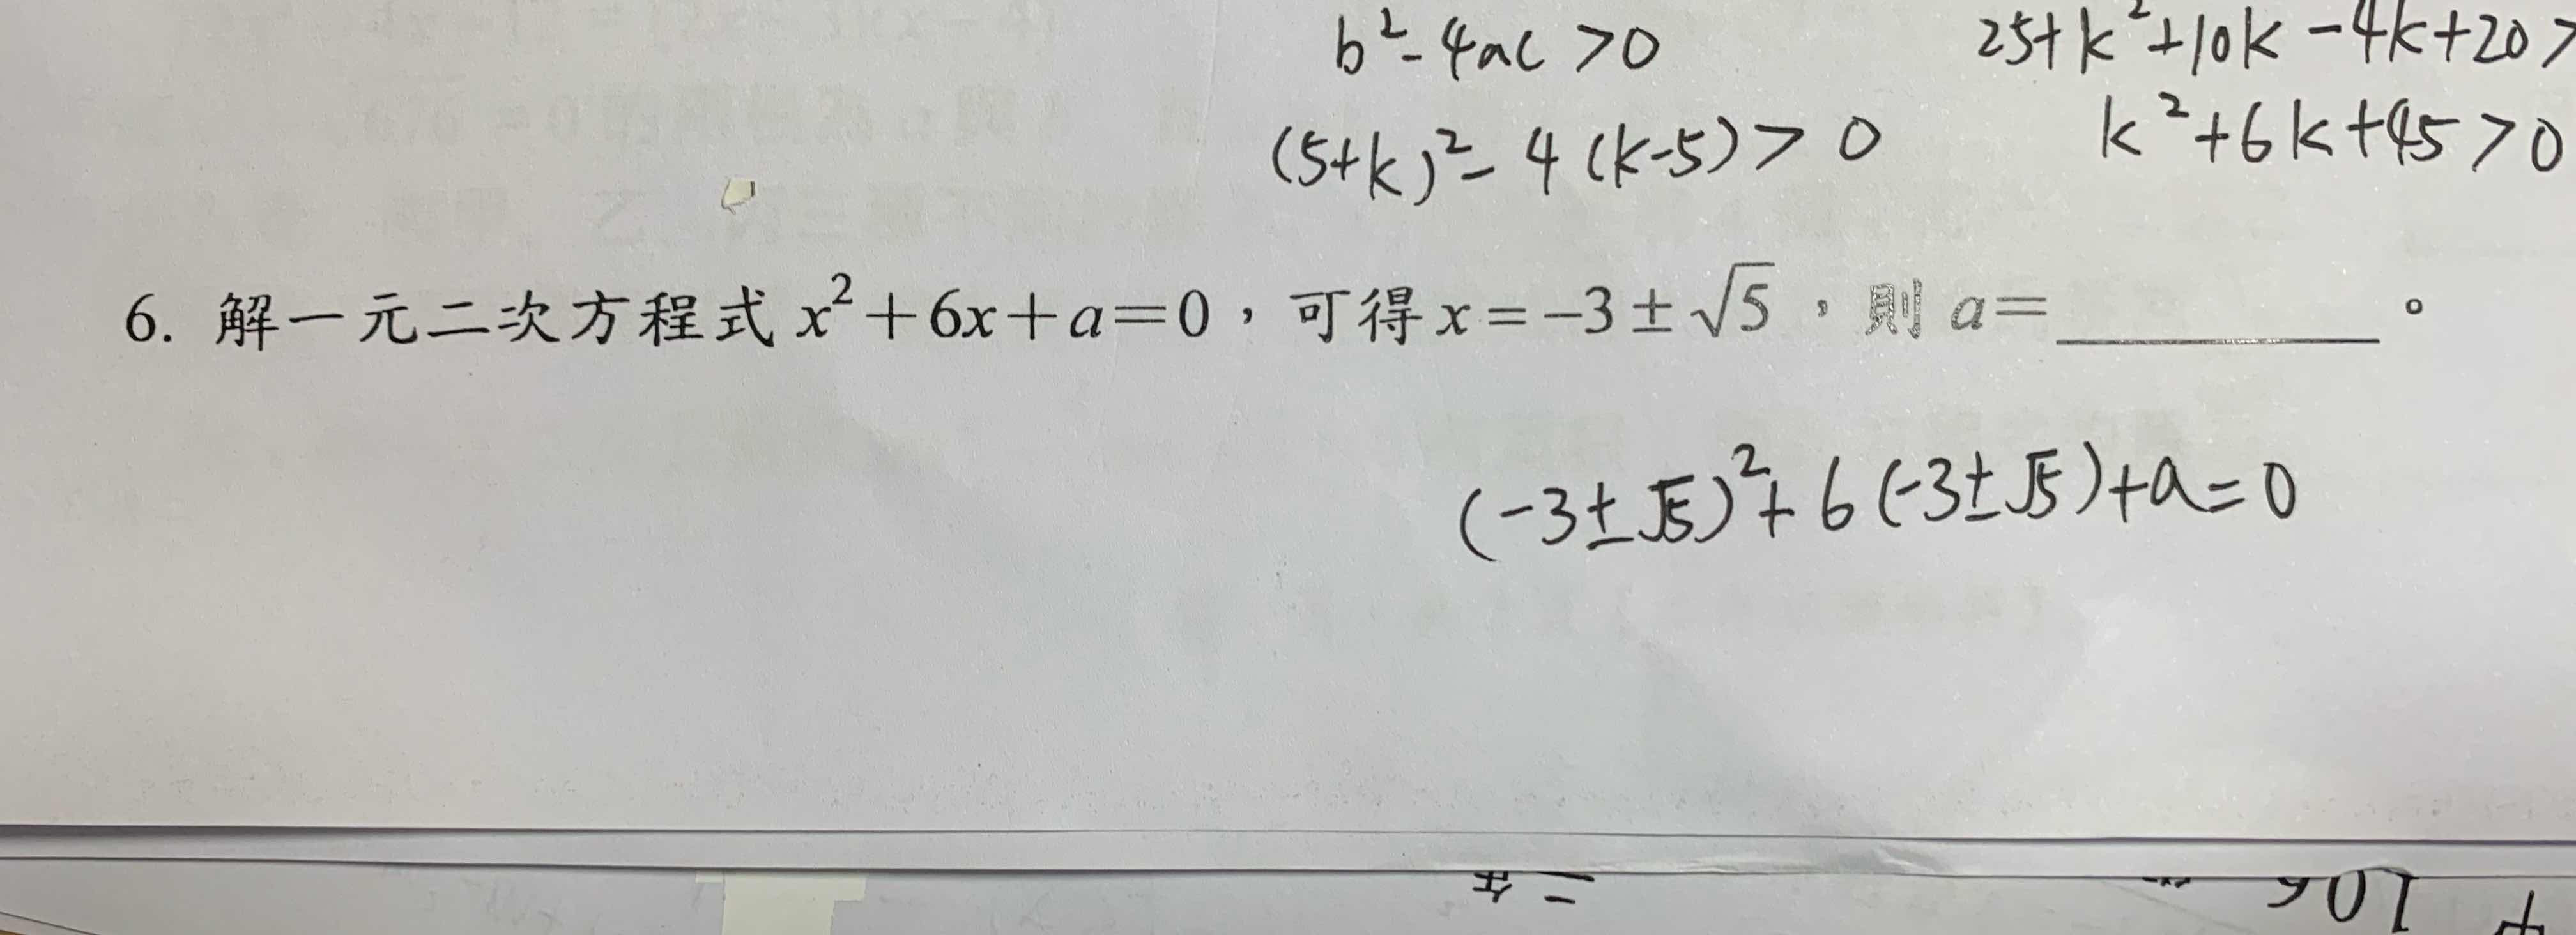 b²-4ac>0
25+k²+10k-4k+20>
(5+k)²-4(k-5)>0
k²+6k+45>0
6. 解一元二次方程式 x²+6x+a=0,可得 x=-3±√5,則 a=________。
(-3±√5)²+6(-3±√5)+a=0